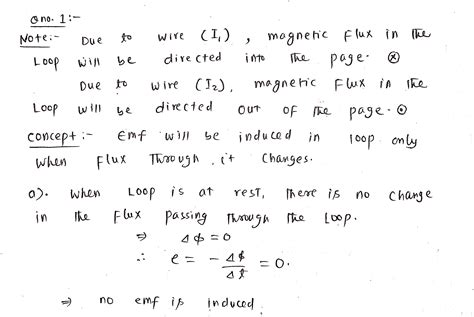 Q no. 1:-
Note:- Due to wire (I₁), magnetic flux in the
Loop will be directed into the page. ⊗
Due to wire (I₂), magnetic flux in the
Loop will be directed out of the page. ⊙
Concept:- Emf will be induced in loop only
when flux Through it changes.
a). when Loop is at rest, there is no change
in the flux passing through the Loop.
⇒ Δϕ = 0
∴ e = - Δϕ/Δt = 0.
⇒ no emf is induced